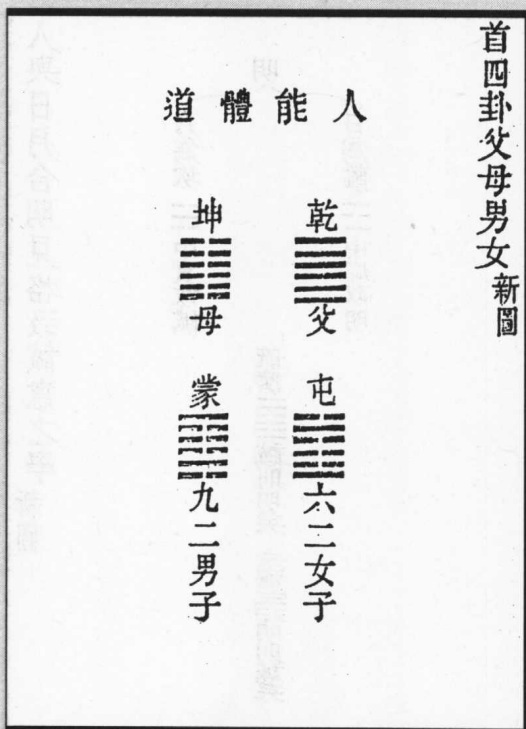 首四卦父母男女新圖
人能體道
乾 父 屯 六二女子
坤 母 蒙 九二男子